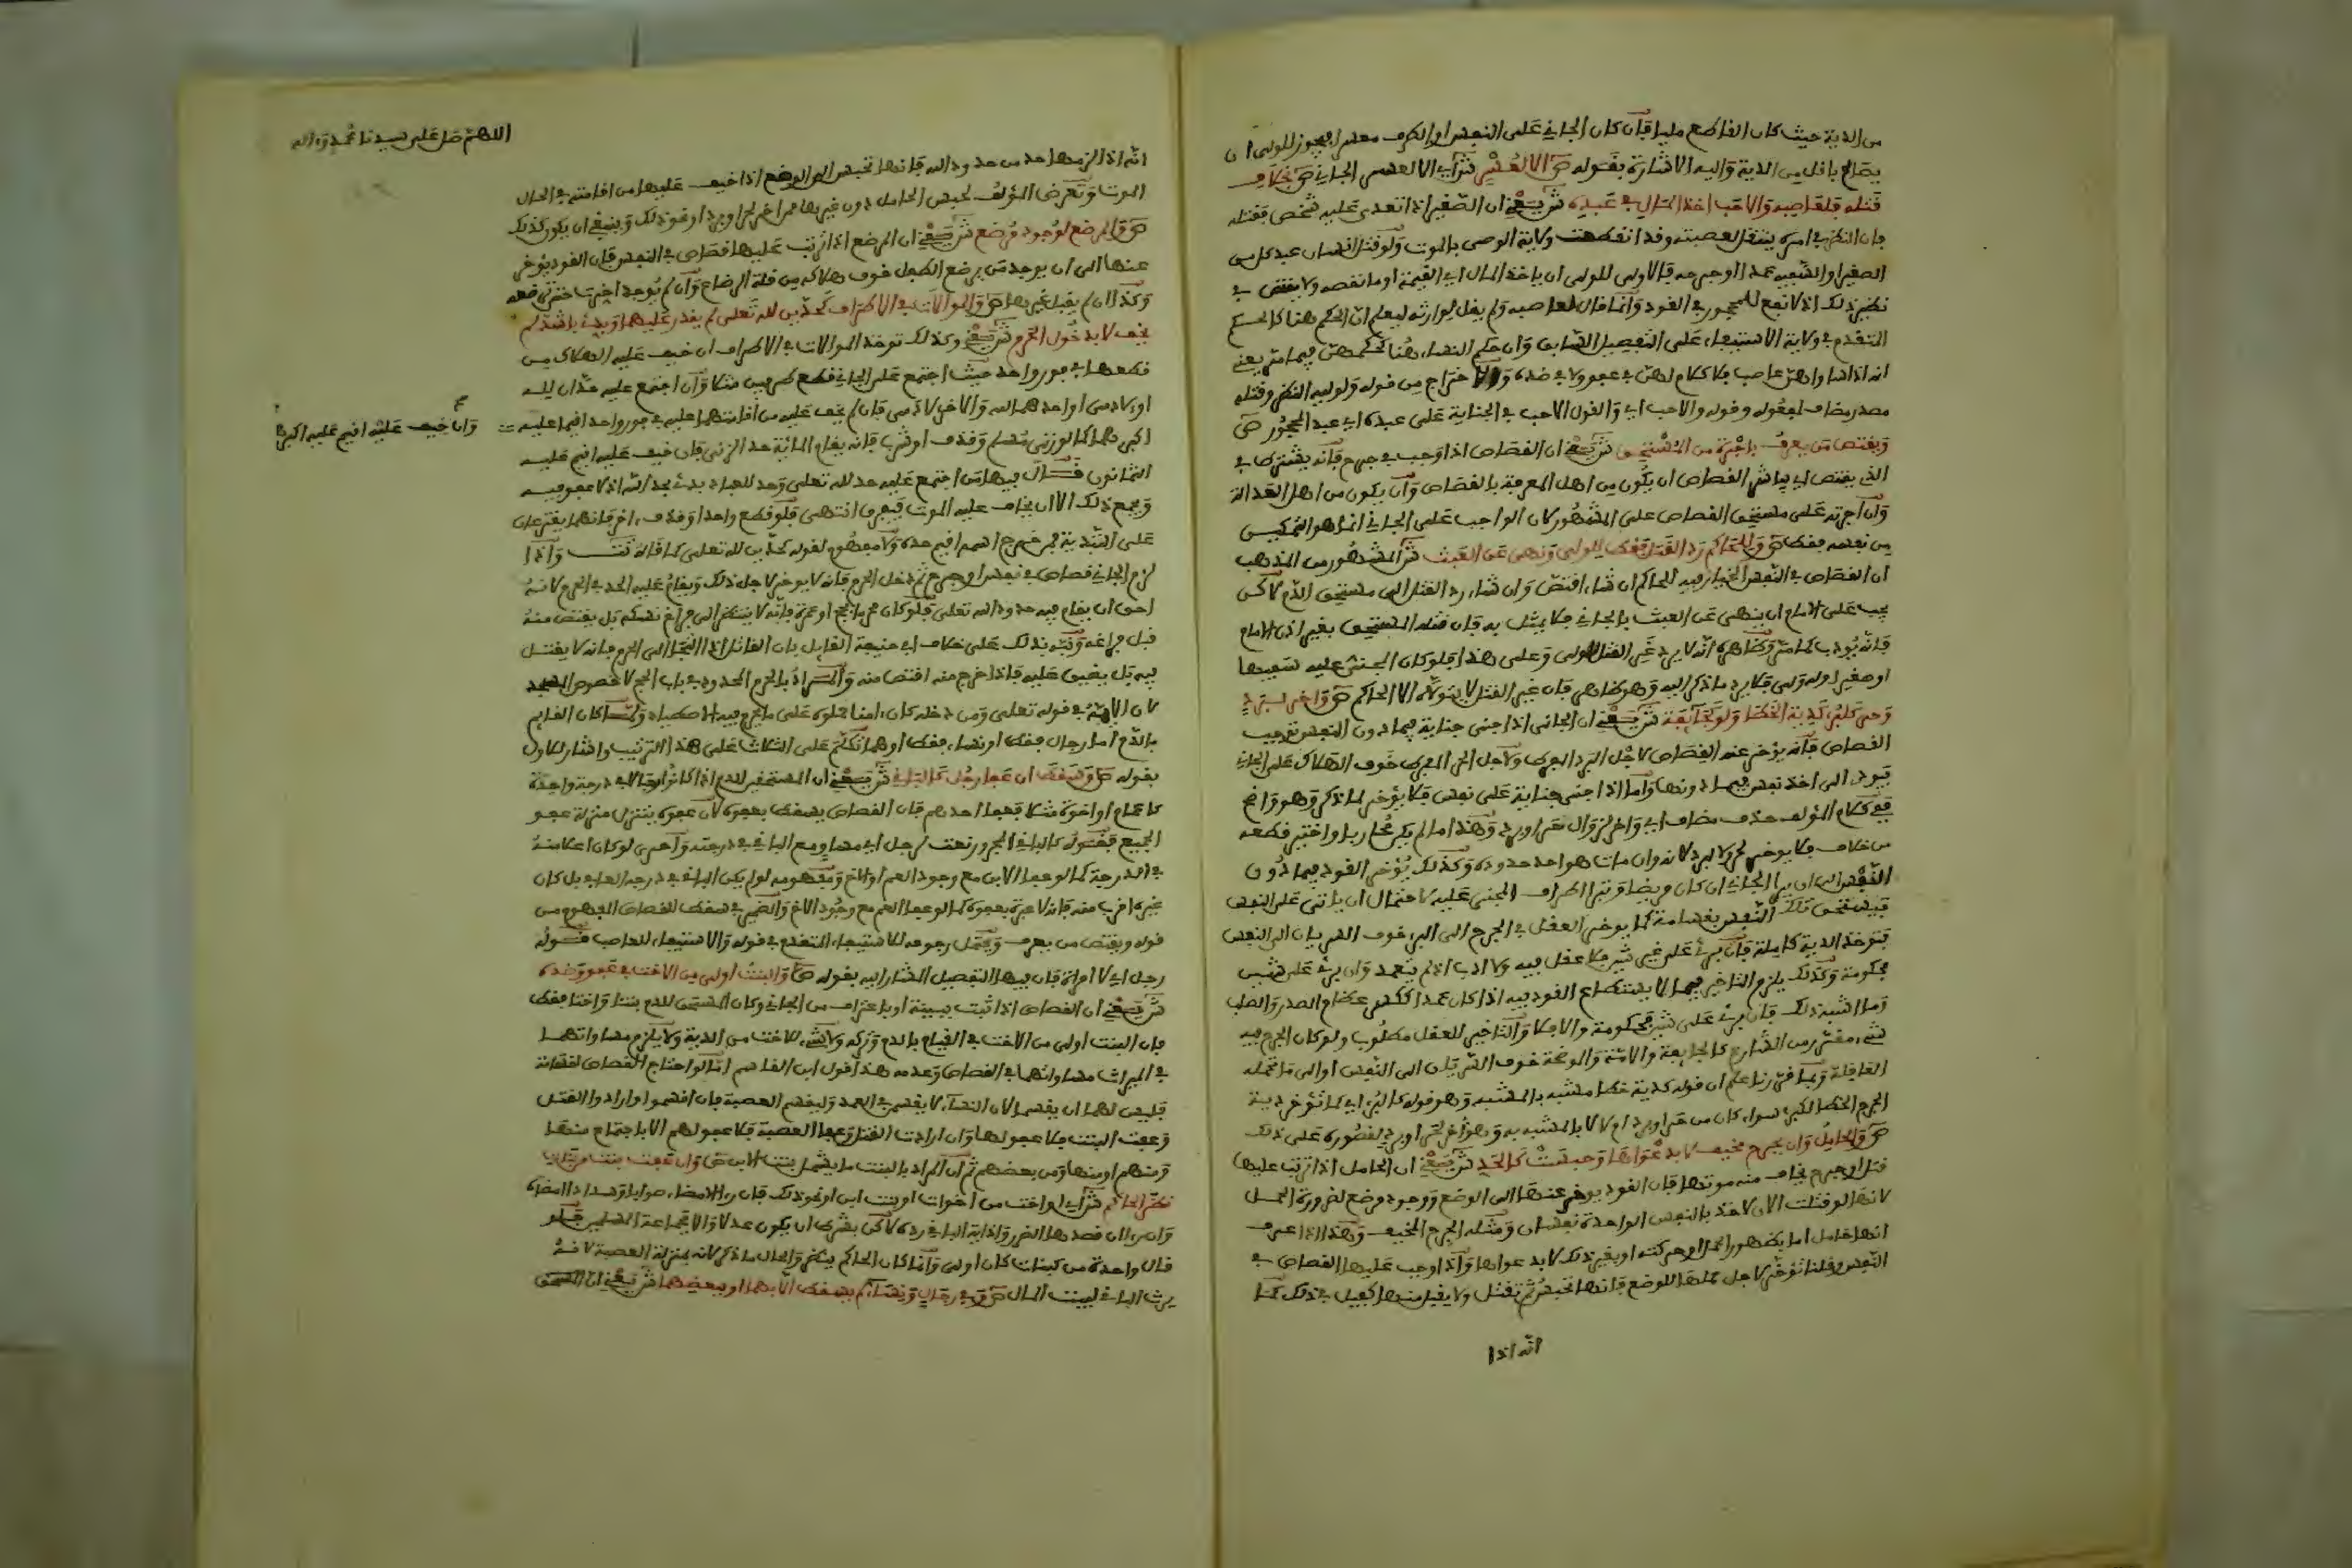 من الدية حيث كان القاطع مليا فإن كان الجاني على النفس أو الطرف معسرا فيجوز للولي أن
يصالح بأقل من الدية وإليه الإشارة بقوله ص إلا لعسر ش أي إلا لعسر الجاني ص بخلاف
قتله فلعاصبه والأحب أخذ المال في عبده ش يعني أن الصغير إذا تعدى عليه شخص فقتله
فإن النظر في أمره ينتقل لعصبته وقد انقطعت ولاية الوصي بالموت ولو قتل إنسان عبد كل من
الصغير أو السفيه عمدا أو جرحه فالأولى للولي أن يأخذ المال أي القيمة أو ما نقصه ولا يقتص في
نظير ذلك إذ لا نفع للمحجور في القود وإنما قال لعاصبه ولم يقل لوارثه ليعلم أن الحكم هنا كالحكم
المتقدم في ولاية الاستيفاء على التفصيل السابق وأن حكم النساء هنا كحكمهن فيما مر يعني
أنه إذا ساواهن عاصب فلا كلام لهن في عفو ولا في ضده وإلا خراج من قوله ولوليه النظر وقتله
مصدر مضاف لمفعوله وقوله والأحب أي والقول الأحب في الجناية على عبده أي عبد المحجور ص
ويقتص من يعرف بأجرة من المستحق ش يعني أن القصاص إذا وجب في جرح فإنه يشترط في
الذي يقتص أي يباشر القصاص أن يكون من أهل المعرفة بالقصاص وأن يكون من أهل العدالة
وأن أجرته على مستحق القصاص على المشهور لأن الواجب على الجاني إنما هو التمكين
من نفسه فقط ص وللحاكم رد القتل فقط للولي ونهى عن العبث ش المشهور من المذهب
أن القصاص في النفس الخيار فيه للحاكم إن شاء اقتص وإن شاء رد القتل إلى مستحق الدم لكن
يجب على الإمام أن ينهى عن العبث بالجاني فلا يمثل به فإن قتله المستحق بغير إذن الإمام
فإنه يؤدب كما مر وظاهره أنه لا يرد غير القتل للولي وعلى هذا فلو كان المجني عليه سفيها
أو صغيرا وله ولي فلا يرد ما ذكر إليه وهو كذلك فإن غير القتل لا يتولاه إلا الحاكم ص وأخر لبرد
وحر كلبرء كدية الخطإ ولو كجائفة ش يعني أن الجاني إذا جنى جناية فيما دون النفس توجب
القصاص فإنه يؤخر عنه القصاص لأجل البرد المفرط ولأجل الحر المفرط خوف الهلاك على الجاني
فيؤدي إلى أخذ نفس فيما دونها وأما إذا جنى جناية على نفس فلا يؤخر لما ذكر وهو واضح
ففي كلام المؤلف حذف مضاف أي وأخر لزوال حر أو برد وهذا ما لم يكن محاربا واختير قطعه
من خلاف فلا يؤخر لحر ولا لبرد لأنه وإن مات هو أحد حدوده وكذلك يؤخر القود فيما دون
النفس إلى أن يبرأ الجاني إن كان مريضا وتبرأ أطراف المجني عليه لاحتمال أن يأتي على النفس
فيستحق تلك النفس بقسامة كما يؤخر العقل في الجرح إلى البرء خوف السريان إلى النفس
فتؤخذ الدية كاملة فإن برئ على غير شين فلا عقل فيه ولا أدب إذ لم يتعمد وإن برئ على شين
فحكومة وكذلك يلزم التأخير فيما لا يستطاع القود فيه إذا كان عمدا ككسر عظام الصدر والصلب
وما أشبه ذلك فإن برئ على شين فحكومة وإلا فلا والتأخير للعقل مطلوب ولو كان الجرح فيه
شيء مقرر من الشارع كالجائفة والآمة والموضحة خوف السريان إلى النفس أو إلى ما تحمله
العاقلة وبما قررنا علم أن قوله كدية خطإ مشبه بالمشبه وهو قوله كالبرء أي كما تؤخر دية
الجرح الخطإ للبرء سواء كان من حر أو برد أم لا لا بالمشبه به وهو أخر لحر أو برد لقصوره على ذلك
ص والحامل وإن بجرح مخيف لا بدعواها وحبست كالحد ش يعني أن الحامل إذا ترتب عليها
قتل أو جرح يخاف منه موتها فإن القود يؤخر عنها إلى الوضع ووجود مرضع لضرورة الحمل
لأنها لو قتلت الآن لأخذ بالنفس الواحدة نفسان ومثله الجرح المخيف وهذا إذا عرف
أنها حامل إما بظهور الحمل أو حركته أو بغير ذلك لا بدعواها وإذا وجب عليها القصاص في
النفس وقلنا تؤخر لأجل حملها للوضع فإنها تحبس ثم تقتل ولا يقبل منها كفيل في ذلك كما
أنه إذا
اللهم صل على سيدنا محمد وءاله
أنه إذا لزمها حد من حدود الله فإنها تحبس إلى الوضع إذا خيف عليها من إقامته في الحال
الموت وتعرض المؤلف لحبس الحامل دون غيرها ممن أخر لحر أو برد أو نحو ذلك وينبغي أن يكون كذلك
ص والمرضع لوجود مرضع ش يعني أن المرضع إذا ترتب عليها قصاص في النفس فإن القود يؤخر
عنها إلى أن يوجد من يرضع الطفل خوف هلاكه من قلة الرضاع وإن لم يوجد أخرت حتى ترضعه
وكذا إن لم يقبل غيرها ص والموالاة في الأطراف كحدين لله تعالى لم يقدر عليهما وبدئ بأشد لم
يخف لا بدخول الحرم ش يعني وكذلك تؤخذ الموالاة في الأطراف إن خيف عليه الهلاك من
قطعها في فور واحد حيث اجتمع على الجاني قطع طرفين مثلا وإن اجتمع عليه حدان لله
أو لآدمي أو أحدهما لله والآخر لآدمي فإن لم يخف عليه من إقامتهما عليه في فور واحد أقيما عليه
وإن خيف عليه أقيم عليه أكبر
أكبرهما كما لو زنى مسلم وقذف أو شرب فإنه يقام المائة حد الزنى فإن خيف عليه أقيم عليه
الثمانون قال فيها من اجتمع عليه حد لله تعالى وحد للعباد بدئ بحد الله إذ لا عفو فيه
ويجمع ذلك إلا أن يخاف عليه الموت فيفرق انتهى فلو قطع واحدا وقذف آخر فإنهما يقترعان
على التبدية فمن خرج اسمه أقيم حده ولا مفهوم لقوله كحدين لله تعالى كما قاله تت وإذا
لزم الجاني قصاص في نفس أو جرح ثم دخل الحرم فإنه لا يؤخر لأجل ذلك ويقام عليه الحد في الحرم لأنه
أحق أن يقام فيه حدود الله تعالى فلو كان محرما بحج أو عمرة فإنه لا ينتظر إلى فراغ نسكه بل يقتص منه
قبل فراغه ونبه بذلك على خلاف أبي حنيفة القايل بأن القاتل إذا التجأ إلى الحرم فإنه لا يقتل
فيه بل يضيق عليه فإذا خرج منه اقتص منه والمراد بالحرم المحدود في باب الحج لا خصوص المسجد
لأن الآية في قوله تعالى ومن دخله كان ءامنا محمولة على ما يحرم فيه الاصطياد ولما كان القايم
بالدم إما رجال فقط أو نساء فقط أو هما تكلم على الثلاث على هذا الترتيب وأشار للأول
بقوله ص وسقط إن عفا رجل كالباقي ش يعني أن المستحقين للدم إذا كانوا رجالا في درجة واحدة
كأعمام أو إخوة مثلا فعفا أحدهم فإن القصاص يسقط بعفوه لأن عفوه يتنزل منزلة عفو
الجميع فقوله كالباقي المجرور نعت لرجل أي مساو مع الباقي في درجته وأحرى لو كان أعلا منه
في الدرجة كما لو عفا الابن مع وجود العم أو الأخ ومفهومه لو لم يكن الباقي في درجة العافي بل كان
غيره أقرب منه فإنه لا عبرة بعفوه كما لو عفا العم مع وجود الأخ والضمير في سقط للقصاص المفهوم من
قوله ويقتص من يعرف ويحتمل رجوعه للاستيفاء المتقدم في قوله والاستيفاء للعاصب قوله
رجل أي لا امرأة فإن فيها التفصيل المشار إليه بقوله ص والبنت أولى من الأخت في عفو وضده
ش يعني أن القصاص إذا ثبت ببينة أو باعتراف من الجاني وكان المستحق للدم بنتا وأختا فقط
فإن البنت أولى من الأخت في القيام بالدم وتركه ولا شيء للأخت من الدية ولا يلزم مساواتهما
في الميراث مساواتهما في القصاص وعدمه هذا قول ابن القاسم أما لو احتاج القصاص لقسامة
فليس لهما أن يقسما لأن النساء لا يقسمن في العمد وليقسم العصبة فإن أقسموا وأرادوا القتل
وعفت البنت فلا عفو لها وإن أرادت القتل وعفا العصبة فلا عفو لهم إلا باجتماع منها
ومنهم أو منها ومن بعضهم ثم إن المراد بالبنت ما يشمل بنت الابن ص وإن عفت بنت من بنات
نظر الحاكم ش أي أو أخت من أخوات أو بنت ابن أو نحو ذلك فإن رءا الإمضاء صوابا وسدادا أمضاه
وإن رءا أن قصدها الضرر وإذاية الباقي رده لكن بشرط أن يكون عدلا وإلا فجماعة المسلمين فلو
قال واحدة من كبنات كان أولى وإنما كان الحاكم ينظر والحال ما ذكر لأنه بمنزلة العصبة لأنه
يرث الباقي لبيت المال ص وفي رجال ونساء لم يسقط إلا بهما أو ببعضهما ش يعني أن المستحق